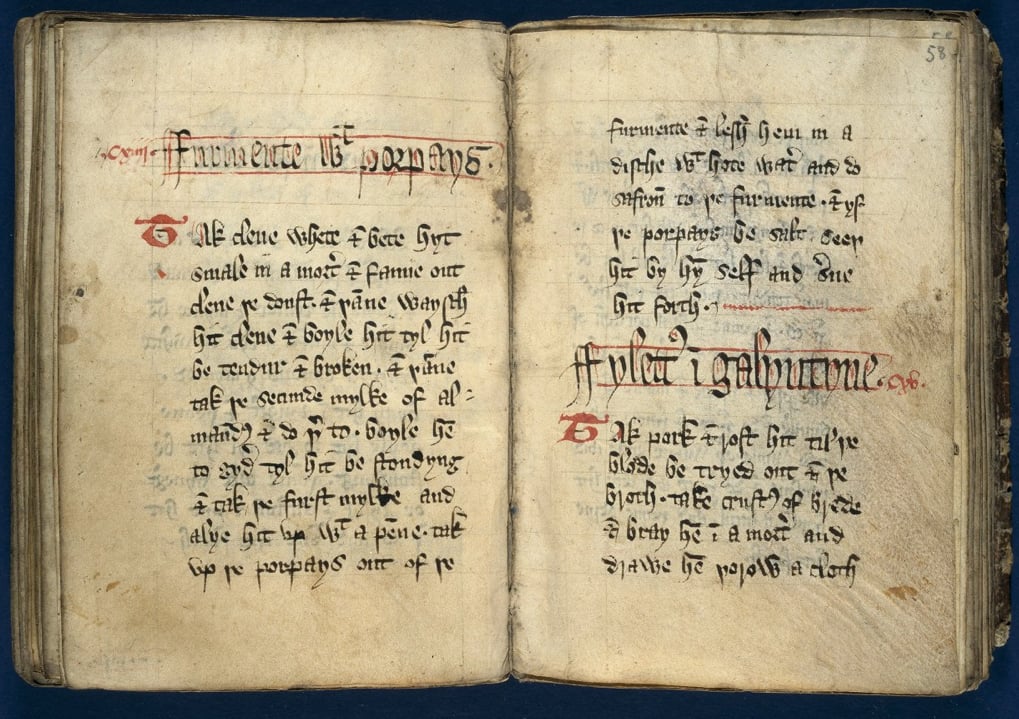 .cxiiij. Furmente wt porpays.
Tak clene whete & bete hyt
smale in a mort & fanne out
clene þe doust. & þanne waysch
hit clene & boyle hit tyl hit
be tendur & broken. & þanne
tak þe secunde mylke of al-
maund & do þ to. boyle hē
to gyd tyl hit be stondyng
& tak þe furst mylke and
alye hit up wt a penne. tak
vp þe porpays out of þe
58
furmente & lesh hem in a
dische wt hote wat and do
safroū to þe furmente. & yf
þe porpays be salt. seeþ
hit by hȳ self and sue
hit forth.
Fylett ī galyntyne. cxv.
Tak pork & rost hit til þe
blode be tryed out & þe
broth. take crust of brede
& bray hē ī a mort and
drawe hē þorow a cloth